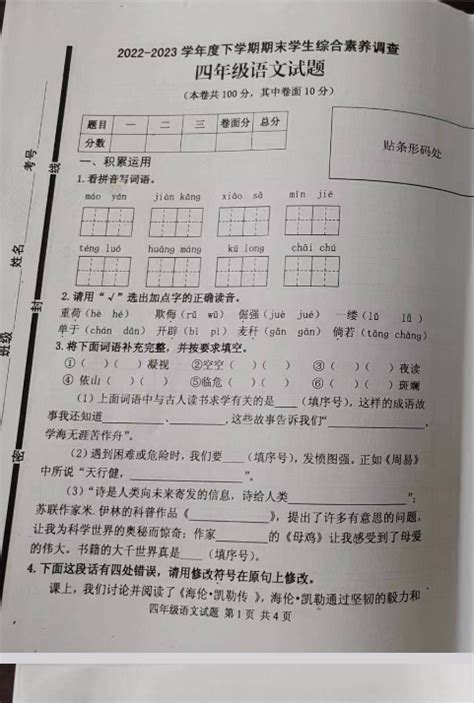 2022-2023 学年度下学期期末学生综合素养调查
四年级语文试题
(本卷共 100 分，其中卷面 10 分)
题目 一 二 三 卷面分 总分
分数
贴条形码处
考号
线
姓名
封
班级
密
一、积累运用
1.看拼音写词语。
máo yán jiàn kāng xiāo sǎ mǐn jié
téng luó huāng máng kū long chāi chú
2.请用“√”选出加点字的正确读音。
重荷（hè hé） 欺侮（rǔ wǔ） 倔强（juè jué） 一缕（lǚ lǔ）
单于（chán dān） 开辟（bì pì） 麦秆（gǎn gān） 倘若（tǎng chǎng）
3.将下面词语补充完整，并按要求填空。
①（ ）（ ）凝视 ②空空（ ）（ ） ③（ ）（ ）夜读
④ 依山（ ）（ ） ⑤临危（ ）（ ） ⑥（ ）（ ）斑斓
(1）上面词语中与古人读书求学有关的是____（填序号），这样的成语故
事我还知道________、________，这些故事告诉我们“________，
学海无涯苦作舟”。
(2）遇到困难或危险时，我们要____（填序号），发愤图强。正如《周易》
中所说“天行健，________”。
(3）“诗是人类向未来寄发的信息，诗给人类________”；
苏联作家米.伊林的科普作品《________》，提出了许多有意思的问题，
让我为科学世界的奥秘而惊奇；作家________的《母鸡》让我感受到了母爱
的伟大。书籍的大千世界真是____（填序号）。
4.下面这段话有四处错误，请用修改符号在原句上修改。
课上，我们讨论并阅读了《海伦•凯勒传 》，海伦•凯勒通过坚韧的毅力和
四年级语文试题 第 1 页 共 4 页